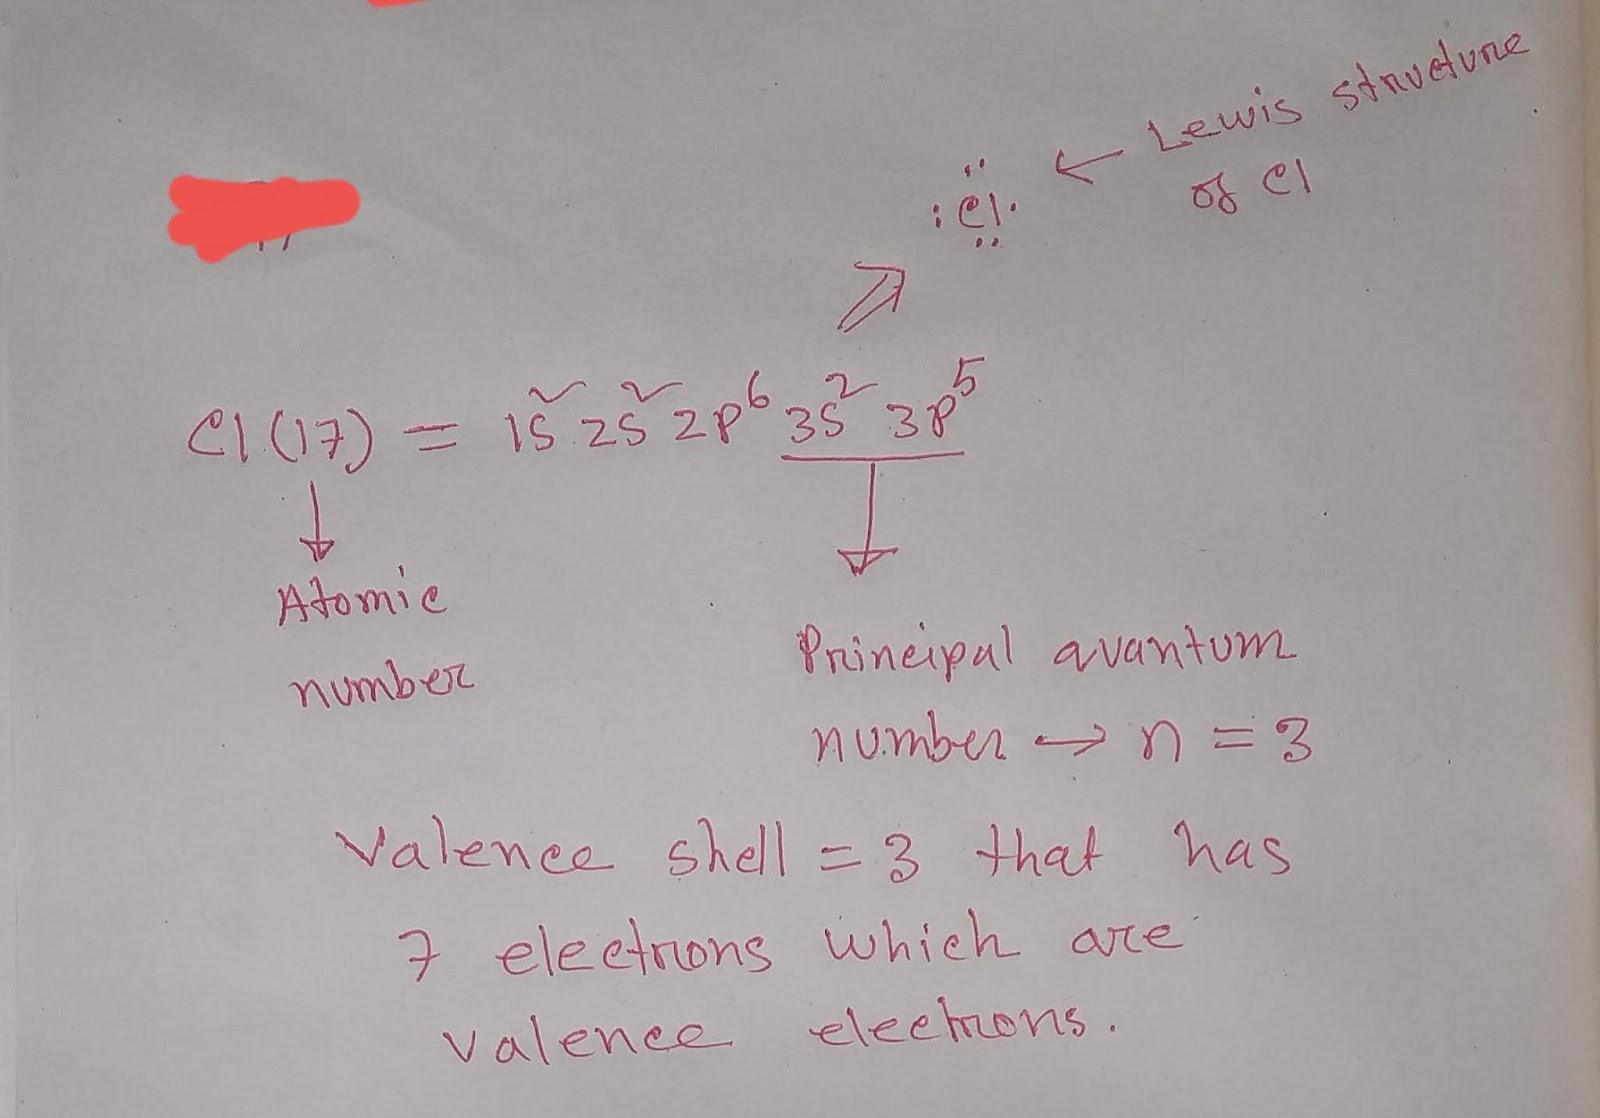 Lewis structure
of Cl
:C̤̈l·
Cl(17) = 1s² 2s² 2p⁶ 3s² 3p⁵
Atomic
number
Principal quantum
number → n = 3
Valence shell = 3 that has
7 electrons which are
valence electrons.